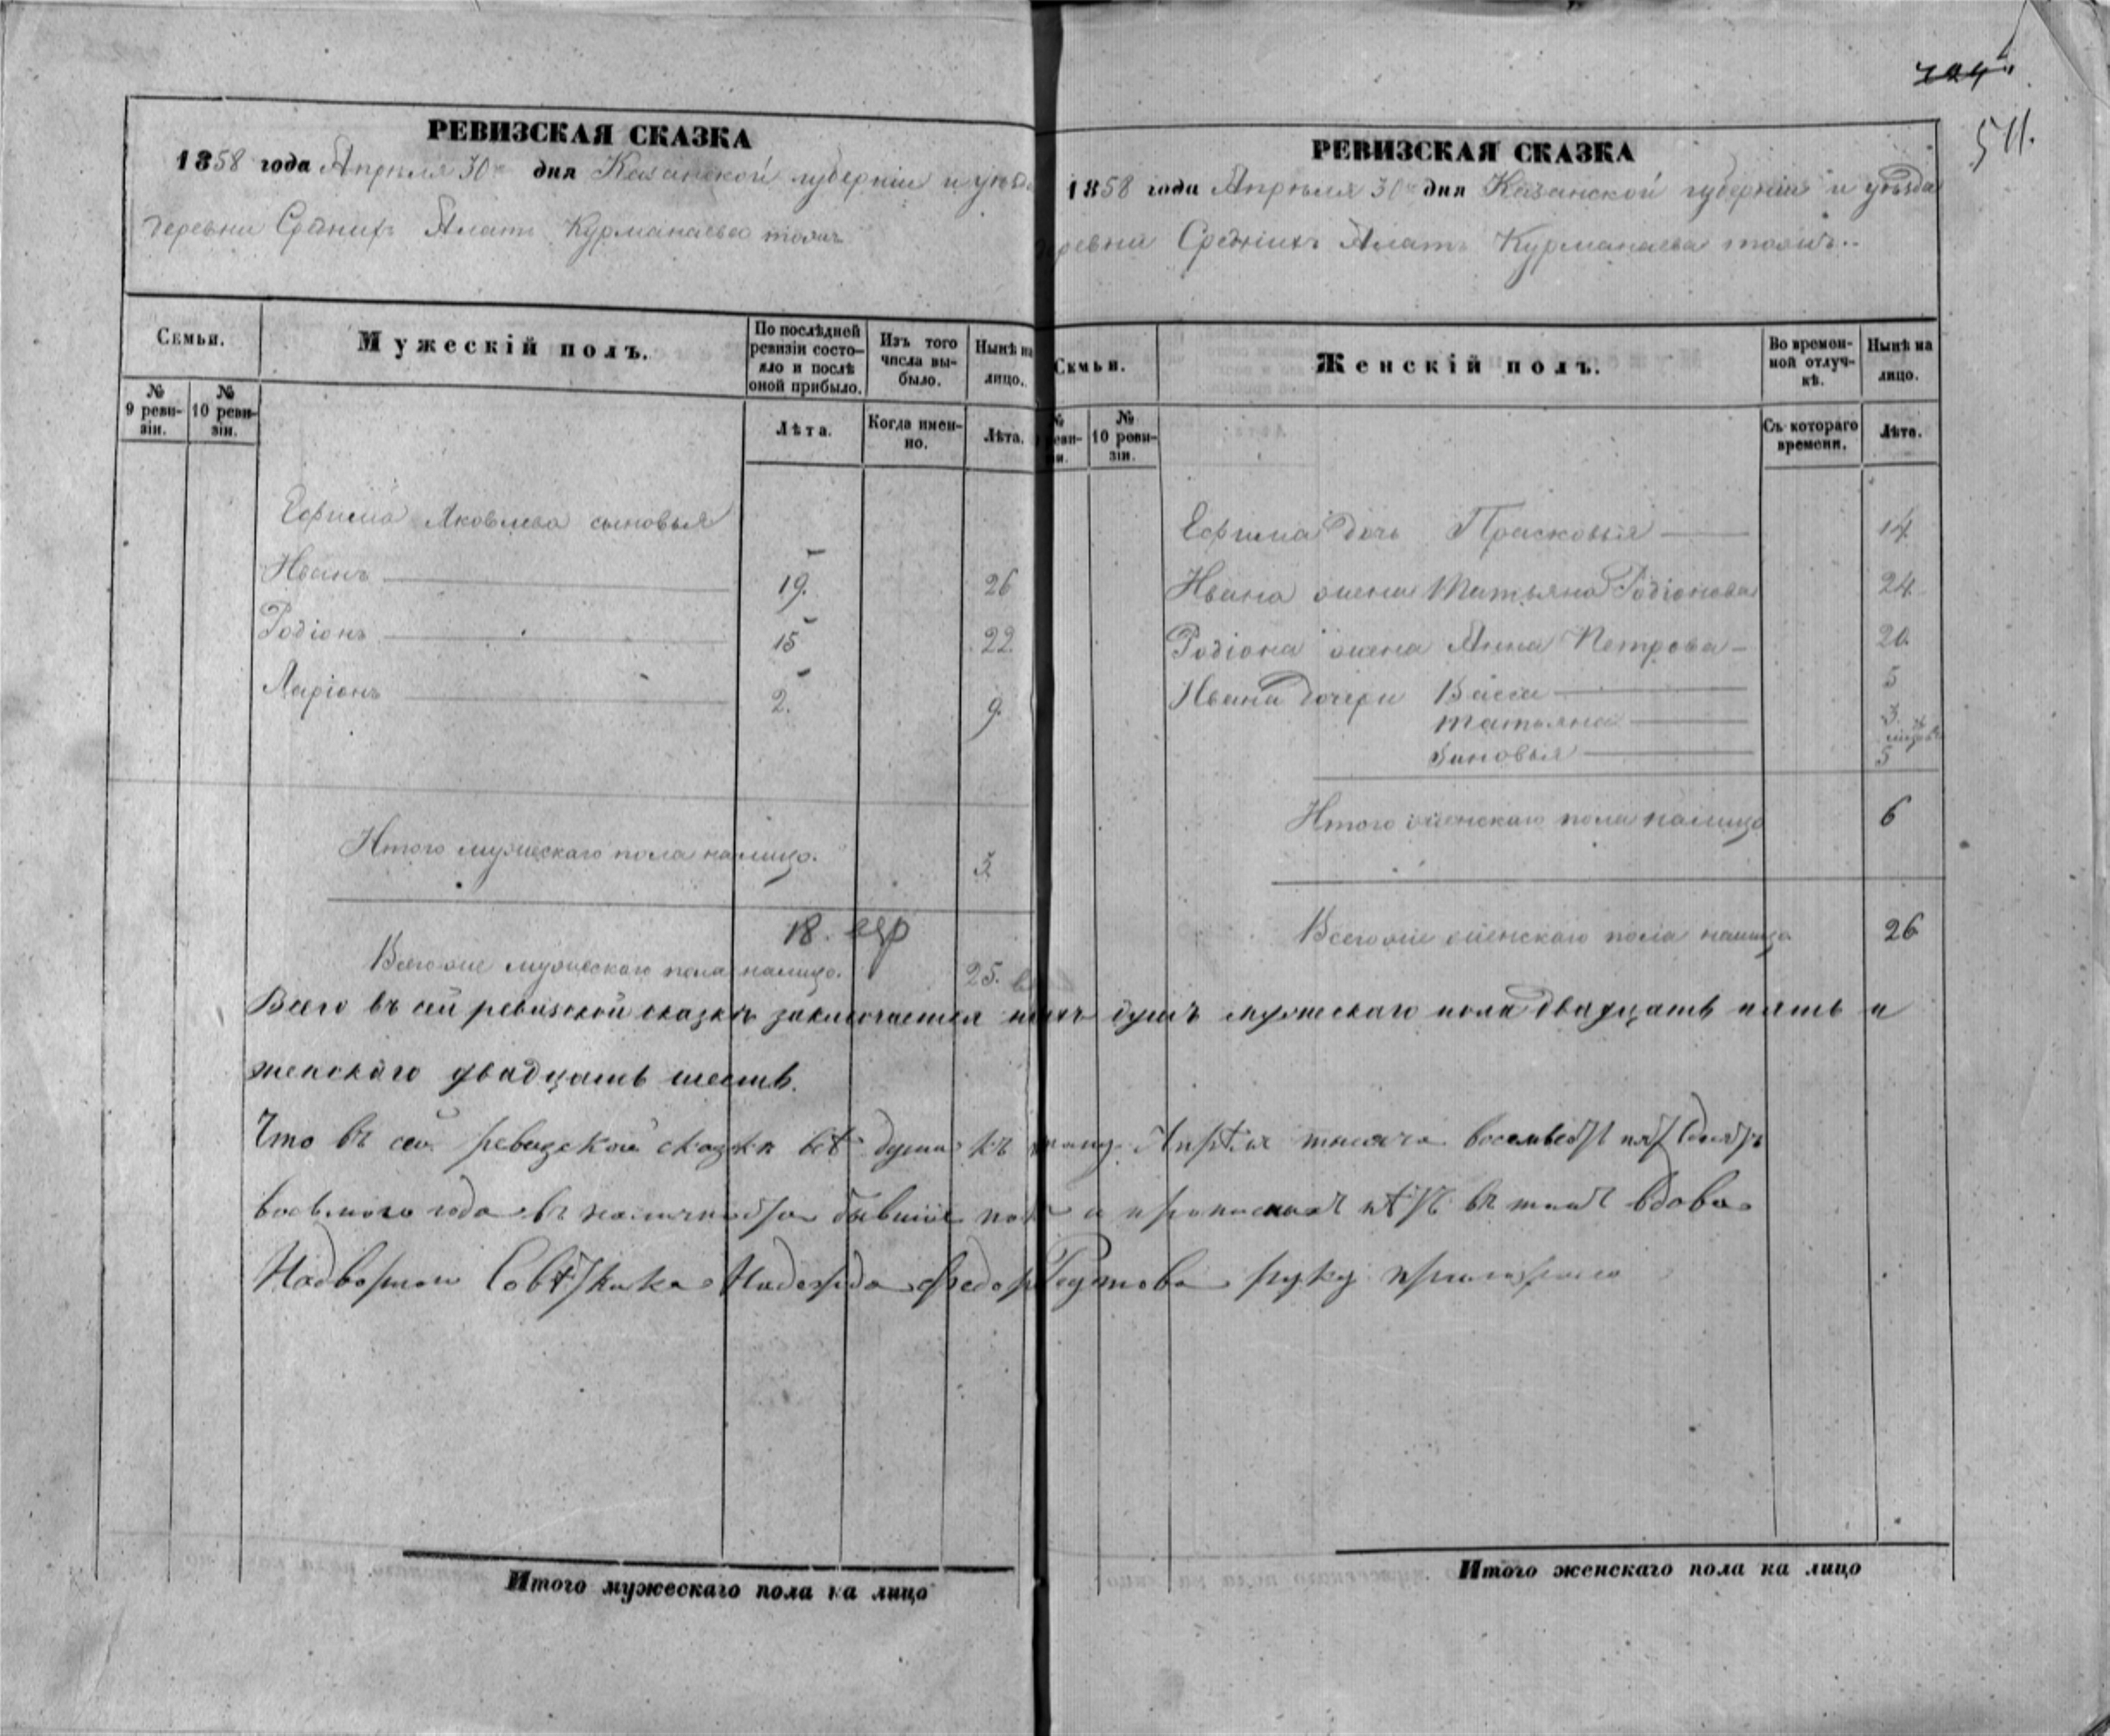 724
511.
РЕВИЗСКАЯ СКАЗКА
1858 года Апрѣля 30 дня Казанской губерніи и уѣзда
деревни Среднихъ Алатъ Курманаева тожъ
Семьи.
Мужескій полъ.
По послѣдней ревизіи состояло и послѣ оной прибыло.
Изъ того числа выбыло.
Нынѣ на лицо.
№ 9 ревизіи.
№ 10 ревизіи.
Лѣта.
Когда именно.
Лѣта.
Ефима Яковлева сыновья
Иванъ 19. 26
Родіонъ 15 22
Ларіонъ 2. 9.
Итого мужескаго пола налицо. 3
18.
Всего же мужескаго пола налицо. 25.
РЕВИЗСКАЯ СКАЗКА
1858 года Апрѣля 30 дня Казанской губерніи и уѣзда
деревни Среднихъ Алатъ Курманаева тожъ
Семьи.
Женскій полъ.
Во временной отлучкѣ.
Нынѣ на лицо.
№ 9 ревизіи.
№ 10 ревизіи.
Съ котораго времени.
Лѣта.
Ефима дочь Прасковья 14
Ивана жена Татьяна Родіонова 24
Родіона жена Анна Петрова 20
Ивана дочери Васса 5
Татьяна 3
Зиновья 5
Итого женскаго пола налицо 6
Всего же женскаго пола налицо 26
Всего въ сей ревизской сказкѣ заключается душъ мужескаго пола двадцать пять и
женскаго двадцать шесть.
Что въ сей ревизской сказкѣ всѣ души къ Апрѣля тысяча восемьсотъ пятьдесятъ
восьмого года въ наличности бывшіе и прописныхъ нѣтъ въ томъ вдова
Надворнаго Совѣтника Надежда Федор руку приложила
Итого мужескаго пола на лицо
Итого женскаго пола на лицо